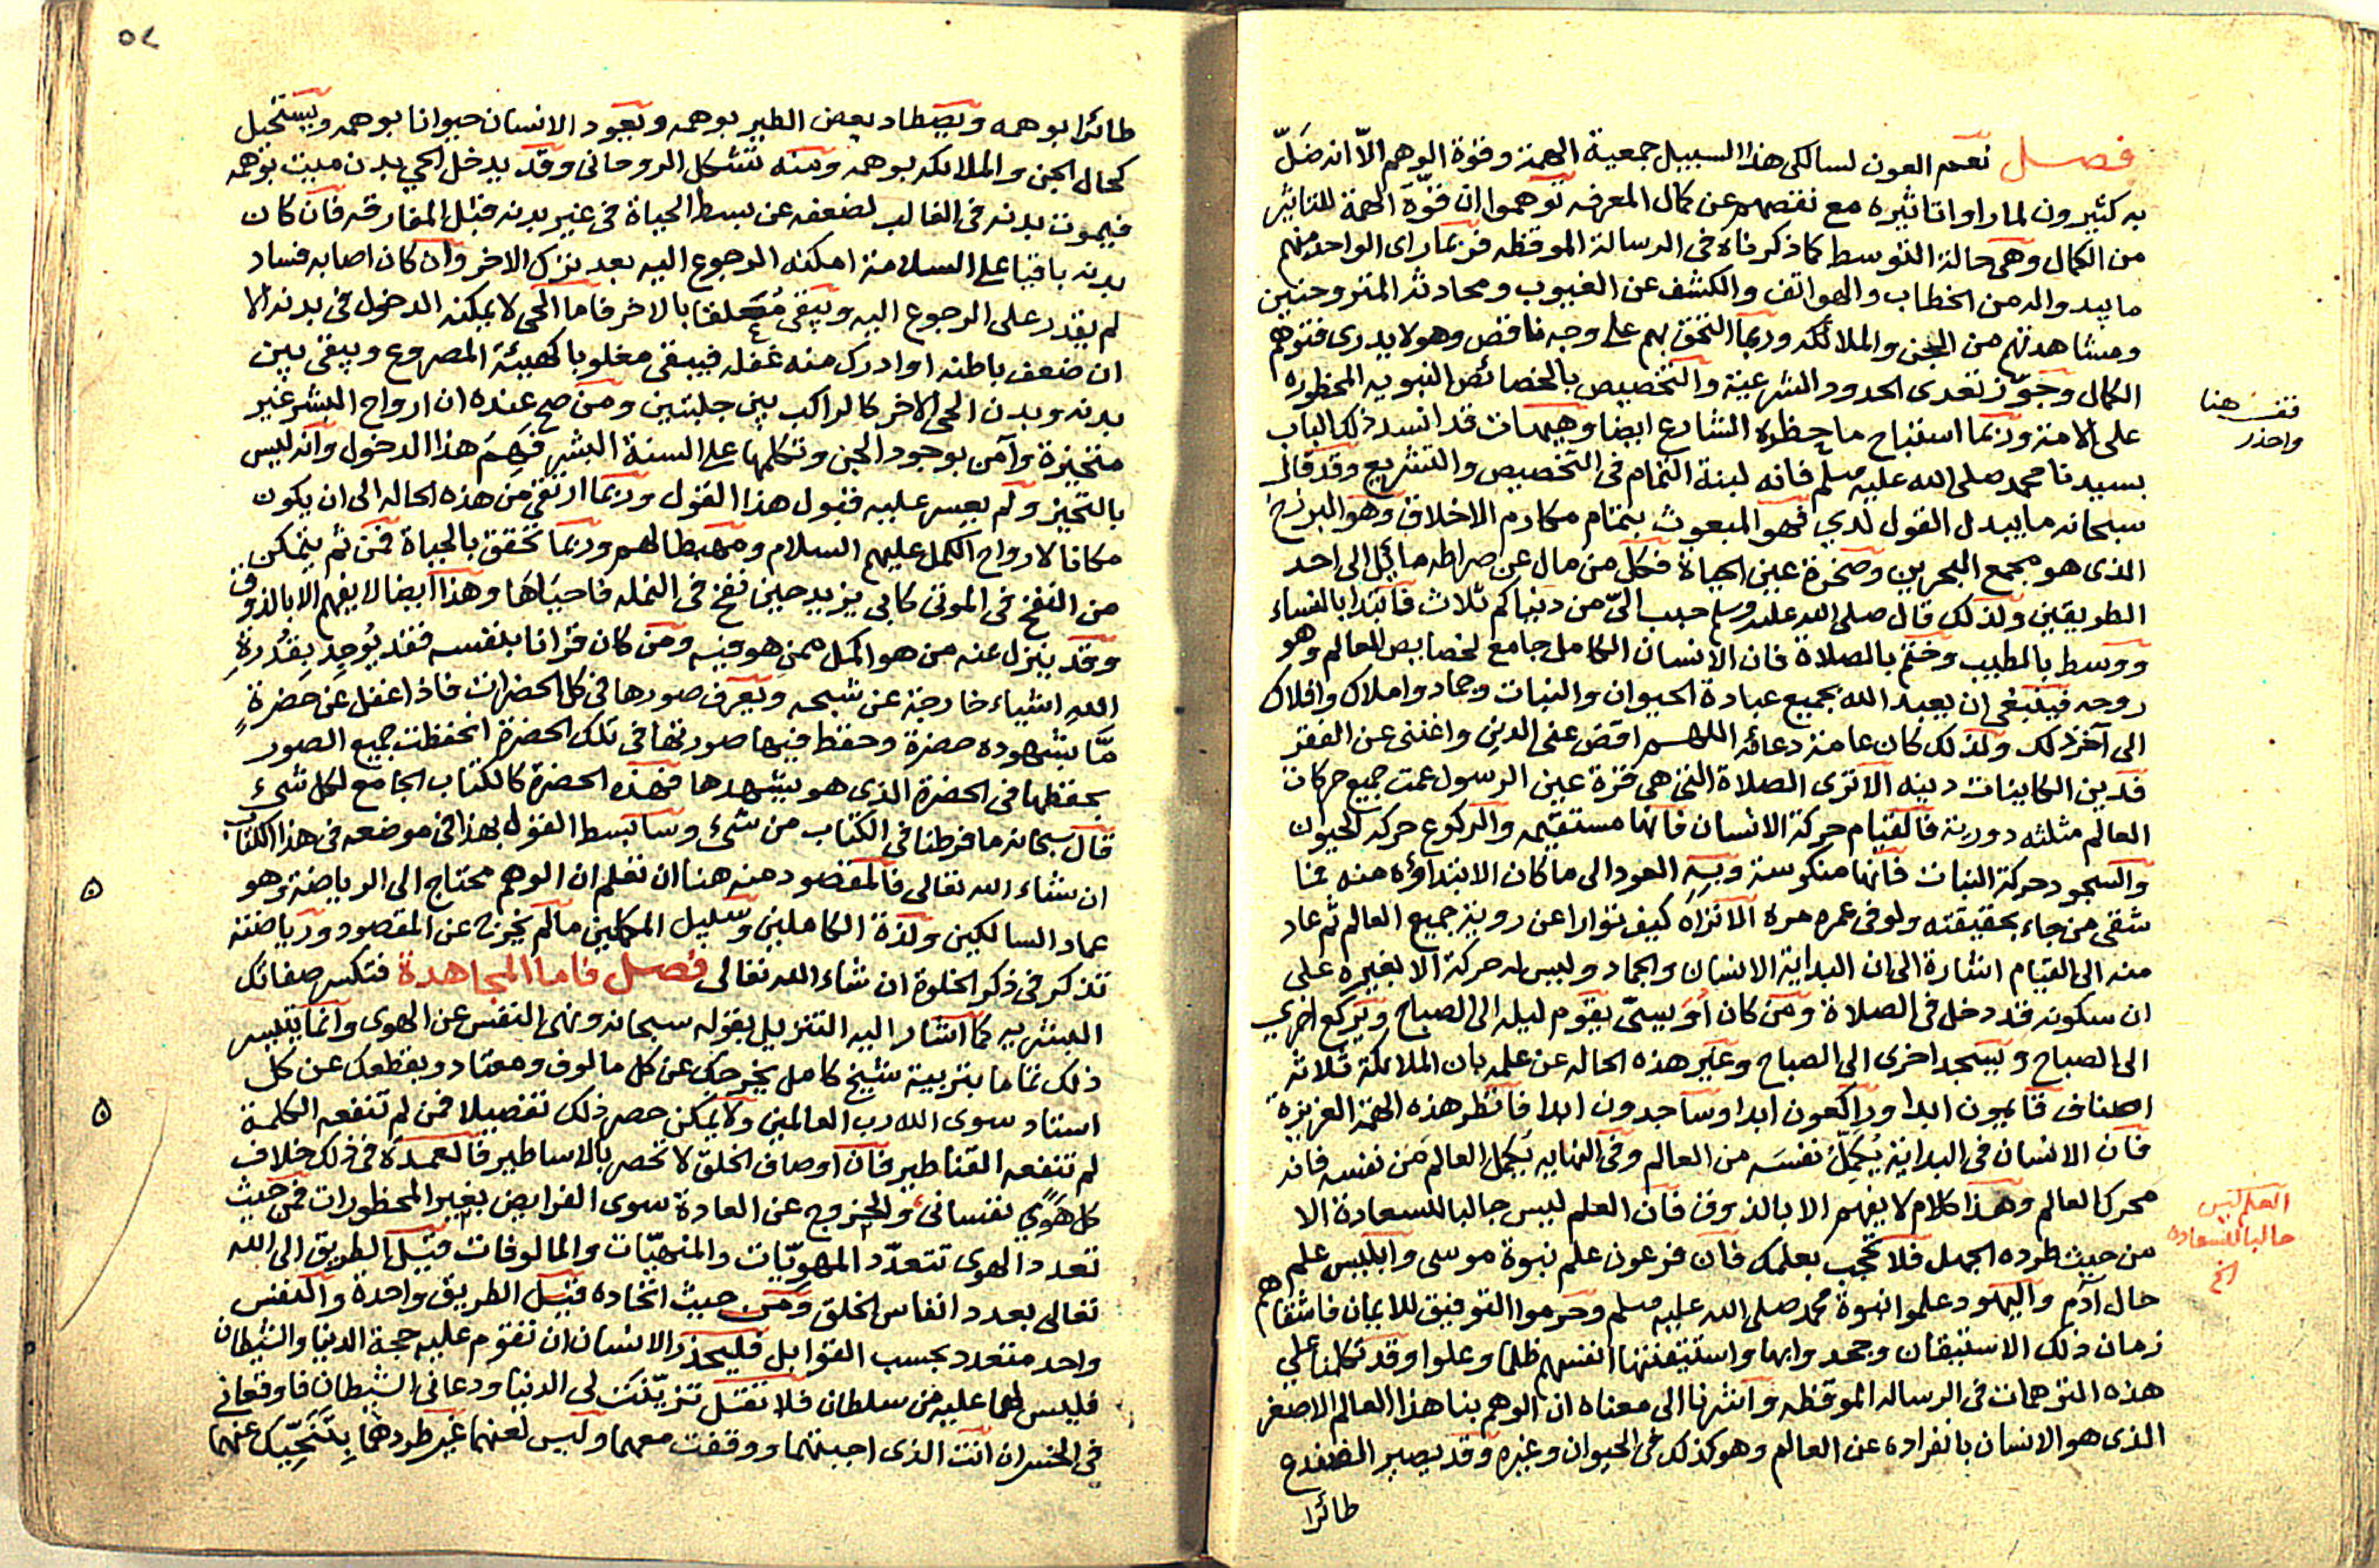 فصل نعم العون لسالكى هذا السبيل جمعية الهمة وقوة الوهم الا انه ضل
به كثيرون لما راوا تاثيره مع نقصهم عن كمال المعرفه توهموا ان قوة الهمة للتاثير
من الكمال وهى حالة التوسط كما ذكرناه فى الرسالة الموقظه فربما راى الواحد منهم
ما يبدوا له من الخطاب والهواتف والكشف عن الغيوب ومحادثة المتروحنين
ومشاهدتهم من الجن والملائكه وربما التحق بهم على وجه ناقص وهو لا يدرى فتوهم
الكمال وجوّز تعدى الحدود الشرعية والتخصيص بالخصائص النبويه المحظوره
على الامة وربما استباح ما حظره الشارع ايضا وهيهات قد انسد ذلك الباب
بسيدنا محمد صلى الله عليه وسلم فانه لبنة التمام فى التخصيص والتشريع وقد قال
سبحانه ما يبدل القول لدي فهو المبعوث بتمام مكارم الاخلاق وهو البرزخ
الذى هو مجمع البحرين وصخرة عين الحياة فكل من مال عن صراطه مائل الى احد
الطريقين ولذلك قال صلى الله عليه وسلم حبب الىّ من دنياكم ثلاث فابتدا بالنساء
ووسط بالطيب وختم بالصلاة فان الانسان الكامل جامع لخصايص العالم وهو
روحه فينبغى ان يعبد الله بجميع عبادة الحيوان والنبات وجماد واملاك وافلاك
الى آخر ذلك ولذلك كان عامة دعائه اللهم اقض عنى الدين واغننى عن الفقر
فدين الكاينات دينه الا ترى الصلاة التى هى قرة عين الرسول عمت جميع حركات
العالم مثلثه دورية فالقيام حركة الانسان فانها مستقيمه والركوع حركة الحيوان
والسجود حركة النبات فانها منكوسة وبه العود الى ما كان الابتداؤه منه فما
شقى من جاء بحقيقته ولو فى عمره مره الا تراه كيف توارا عن روية جميع العالم ثم عاد
منه الى القيام اشارة الى ان البداية الانسان والجماد وليس له حركة الا بغيره على
ان سكونه قد دخل فى الصلاة ومن كان اوّيسىّ يقوم ليله الى الصباح ويركع اخرى
الى الصباح ويسجد اخرى الى الصباح وعبر هذه الحاله عن علمه بان الملائكة ثلاثه
اصناف قايمون ابدا وراكعون ابدا وساجدون ابدا فانظر هذه الهمة العزيزة
فان الانسان فى البداية يُكمِّل نفسَه من العالم وفى النهايه يُكمل العالم من نفسه فانه
محرك العالم وهذا كلام لا يفهم الا بالذوق فان العلم ليس جالبا للسعادة الا
من حيث طرده الجهل فلا تحجب بعلمك فان فرعون علم نبوة موسى وابليس علم
حال آدم واليهود علموا نبوة محمد صلى الله عليه وسلم وحرموا التوفيق للايمان فاشقاهم
زمان ذلك الاستيقان وجحدوا بها واستيقنتها انفسهم ظلما وعلوا وقد تكلمنا على
هذه التوهمات فى الرساله الموقظه واشرنا الى معناه ان الوهم بنا هذا العالم الاصغر
الذى هو الانسان بانفراده عن العالم وهو كذلك فى الحيوان وغيره وقد يصير الضفدع
طائرا
قف هنا
واحذر
العلم ليس
جالبا للسعاده
الخ
٥٢
طائرا بوهمه ويصطاد بعض الطير بوهمه ويعود الانسان حيوانا بوهمه ويستحيل
كحال الجن والملائكه بوهمه ومنه تتشكل الروحانى وقد يدخل الحي بدن ميت بوهمه
فيموت بدنه فى الغالب لضعفه عن بسط الحياة فى غير بدنه قبل المفارقه فان كان
بدنه باقيا على السلامة امكنه الرجوع اليه بعد ترك الاخر وان كان اصابه فساد
لم يقدر على الرجوع اليه ويبقى متعلقا بالاخر فاما الحى لا يمكنه الدخول فى بدنه الا
ان ضعف باطنه او ادرك منه غفله فيبقى مغلوبا كهيئة المصروع ويبقى بين
بدنه وبدن الحي الاخر كالراكب بين جلبتين ومن صح عنده ان ارواح البشر غير
متحيزة وآمن بوجود الجن وتكلمها على السنة البشر فهم هذا الدخول وانه ليس
بالتحيز ولم يعسر عليه قبول هذا القول وربما ارتقى من هذه الحاله الى ان يكون
مكانا لارواح الكمل عليهم السلام ومهبطا لهم وربما تحقق بالحياة فمن ثم يتمكن
من النفخ فى الموتى كابى يزيد حين نفخ فى النمله فاحياها وهذا ايضا لا يفهم الا بالذوق
وقد ينزل عنه من هو اكمل ممن هو فيه ومن كان قرانا بنفسه فقد يُوجِد بِقُدرةِ
اللهِ اشياء خارجة عن شبحه ويعرف صورها فى كل الحضرات فاذا غفل عن حضرة
مّا بشهوده حضرة وحفظ فيها صورتها فى تلك الحضرة انحفظت جميع الصور
بحفظها فى الحضرة الذى هو يشهدها فهذه الحضرة كالكتاب الجامع لكل شىء
قال سبحانه ما فرطنا فى الكتاب من شىء وسابسط القول بهذا فى موضعه فى هذا الكتاب
ان شاء الله تعالى فالمقصود منه هنا ان تعلم ان الوهم محتاج الى الرياضة وهو
عماد السالكين ولذة الكاملين وسبيل المكملين ما لم يخرج عن المقصود ورياضته
تذكر فى ذكر الخلوة ان شاء الله تعالى فصل فاما المجاهدة فتكسر صفاتك
البشريه كما اشار اليه التنزيل بقوله سبحانه ونهى النفس عن الهوى وانما يتيسر
ذلك تماما بتربية شيخ كامل يخرجك عن كل مالوف ومعتاد ويقطعك عن كل
استناد سوى الله رب العالمين ولا يمكن حصر ذلك تفصيلا فمن لم تنفعه الكلمة
لم تنفعه القناطير فان اوصاف الخلق لا تحصر بالاساطير فالعمدة فى ذلك خلاف
كل هَوًي نفسانى والخروج عن العادة سوى الفرايض بغير المحظورات فمن حيث
تعدد الهوى تتعدّد المهويّات والمنهيّات والمالوفات قيل الطريق الى الله
تعالى بعدد انفاس الخلق ومن حيث اتحاده قيل الطريق واحدة والنفس
واحد متعدد بحسب القوابل فليحذر الانسان ان تقوم عليه حجة الدنيا والشيطان
فليس لهما عليه من سلطان فلا تقل تزيّنت لى الدنيا ودعانى الشيطان فاوقعانى
فى الخسران انت الذى اجبتهما ووقفت معهما وليس لعنهما غير طردهما بِتَنَحّيك عنهما